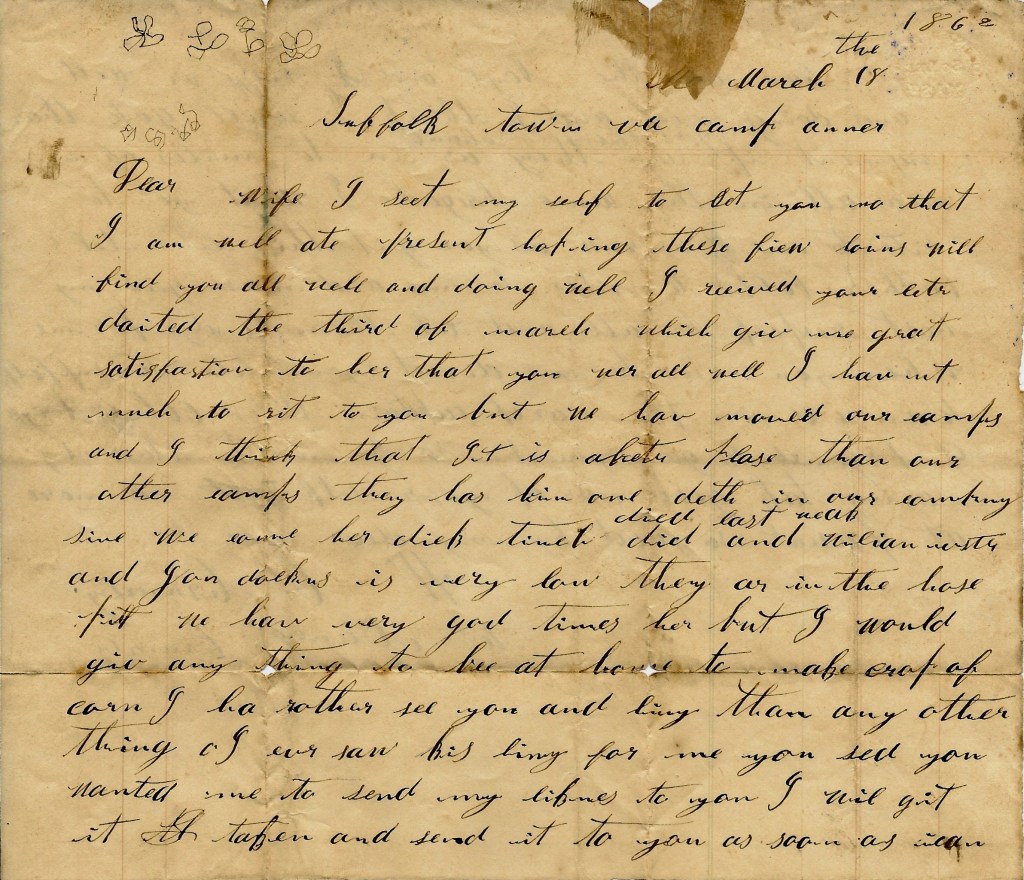 1862
the
March 18
Suffolk town va camp anner
Dear Wife I seet my self to let you no that
I am well ate present hoping these fiew loins will
find you all well and doing well I reeived your letr
daited the third of march which giv me grat
satisfaction to her that you wer all well I hav nt
much to rit to you but we hav moved our camps
and I think that It is abetr plase than our
other camps they has bin one deth in our company
died last weak
sinc we came her dick did and Wilian
and Jon is very low they ar in the hose
pitt we hav very god times her but I would
giv any thing to bee at home to make crop of
corn I ha rother see you and liny than any other
thing I evr saw kis liny for me you sed you
wanted me to send my liknes to you I wil git
it taken and send it to you as soon as ican